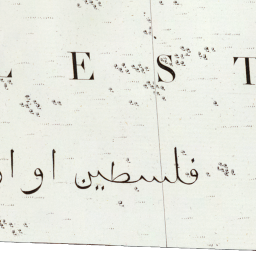 L E S T
فلسطين او ار